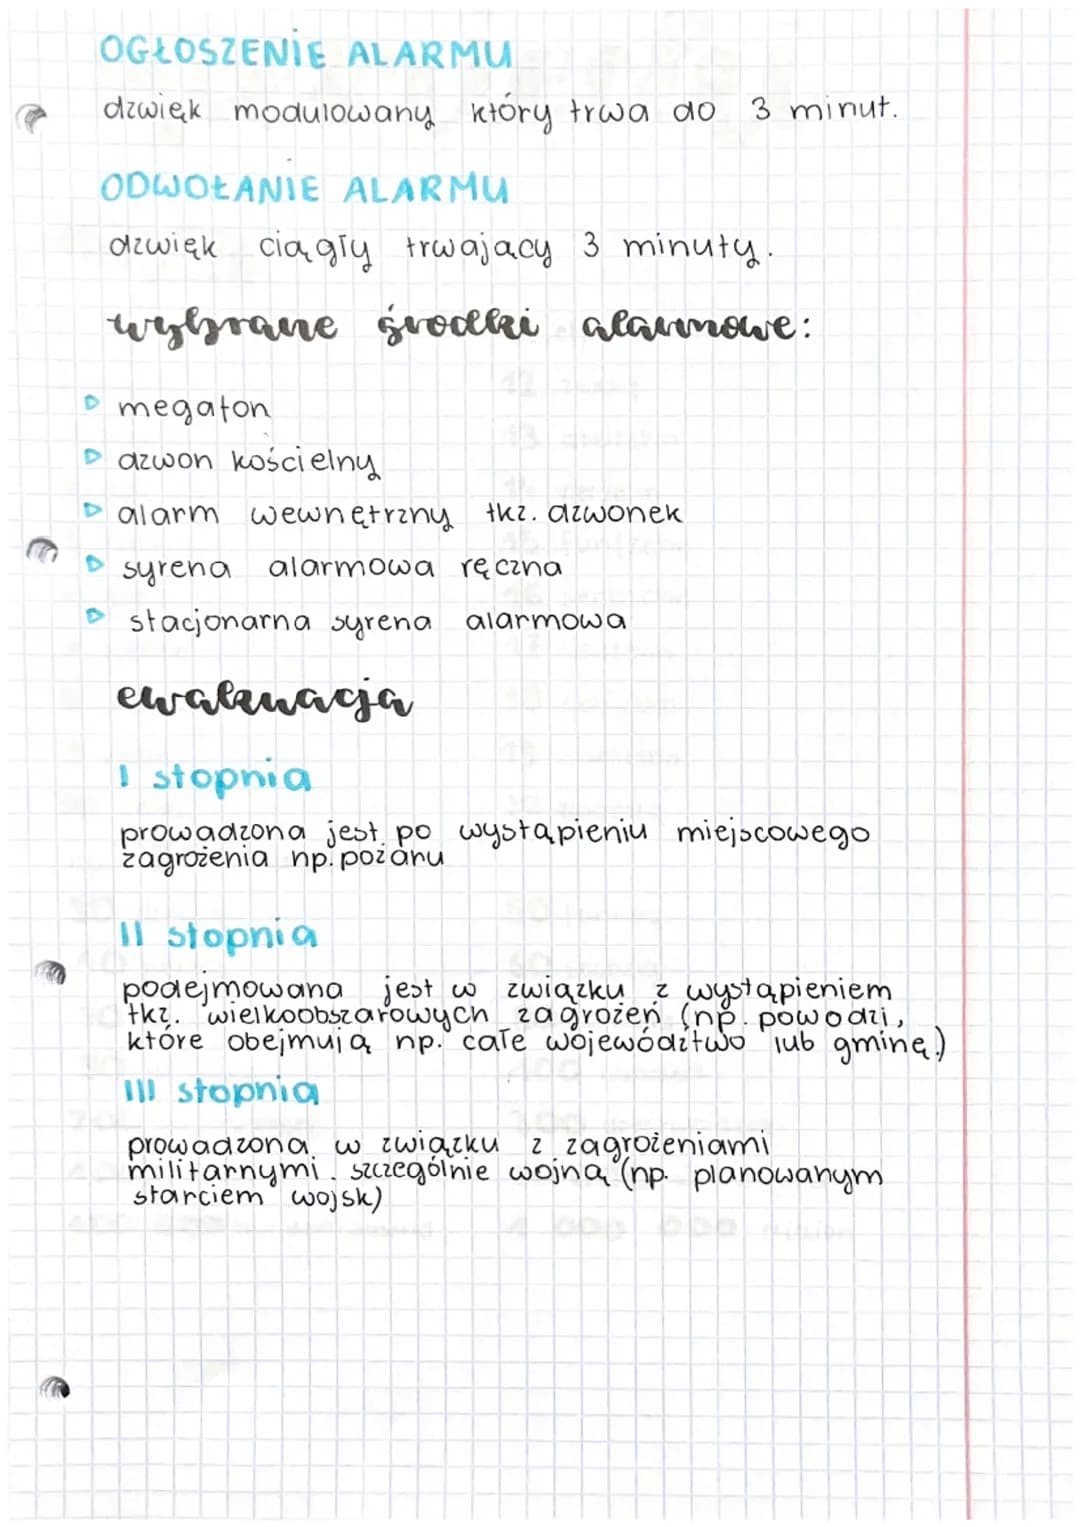 OGŁOSZENIE ALARMU
dzwięk modulowany który trwa do 3 minut.
ODWOŁANIE ALARMU
dzwięk ciągły trwający 3 minuty.
wybrane środki alarmowe:
megafon
dzwon kościelny
alarm wewnętrzny tkz. dzwonek
syrena alarmowa ręczna
stacjonarna syrena alarmowa
ewakuacja
I stopnia
prowadzona jest po wystąpieniu miejscowego
zagrożenia np. pożaru
II stopnia
podejmowana jest w związku z wystąpieniem
tkz. wielkoobszarowych zagrożeń (np. powodzi,
które obejmują np. całe województwo lub gminę.)
III stopnia
prowadzona w związku z zagrożeniami
militarnymi. szczególnie wojną (np. planowanym
starciem wojsk)